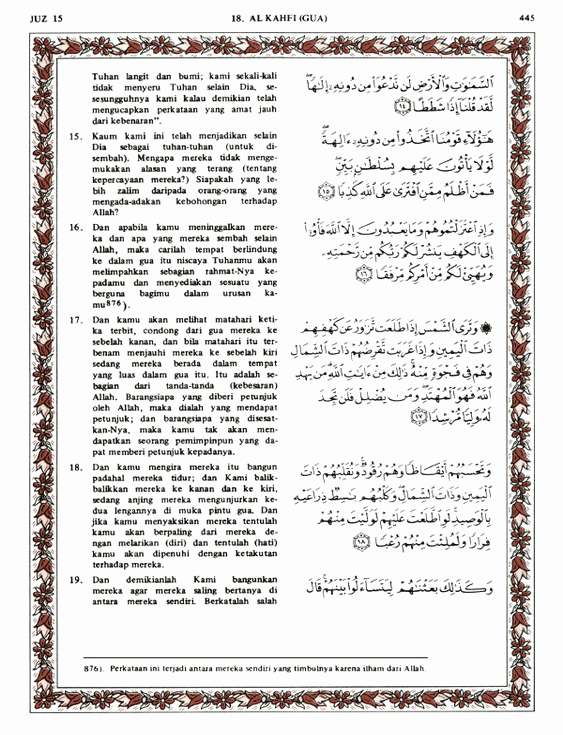 JUZ 15
18. AL KAHFI (GUA)
445
Tuhan langit dan bumi; kami sekali-kali
tidak menyeru Tuhan selain Dia, se-
sesungguhnya kami kalau demikian telah
mengucapkan perkataan yang amat jauh
dari kebenaran".
15. Kaum kami ini telah menjadikan selain
Dia sebagai tuhan-tuhan (untuk di-
sembah). Mengapa mereka tidak menge-
mukakan alasan yang terang (tentang
kepercayaan mereka?) Siapakah yang le-
bih zalim daripada orang-orang yang
mengada-adakan kebohongan terhadap
Allah?
16. Dan apabila kamu meninggalkan mere-
ka dan apa yang mereka sembah selain
Allah, maka carilah tempat berlindung
ke dalam gua itu niscaya Tuhanmu akan
melimpahkan sebagian rahmat-Nya ke-
padamu dan menyediakan sesuatu yang
berguna bagimu dalam urusan ka-
mu876).
17. Dan kamu akan melihat matahari keti-
ka terbit, condong dari gua mereka ke
sebelah kanan, dan bila matahari itu ter-
benam menjauhi mereka ke sebelah kiri
sedang mereka berada dalam tempat
yang luas dalam gua itu. Itu adalah se-
bagian dari tanda-tanda (kebesaran)
Allah. Barangsiapa yang diberi petunjuk
oleh Allah, maka dialah yang mendapat
petunjuk; dan barangsiapa yang disesat-
kan-Nya, maka kamu tak akan men-
dapatkan seorang pemimpinpun yang da-
pat memberi petunjuk kepadanya.
18. Dan kamu mengira mereka itu bangun
padahal mereka tidur; dan Kami balik-
balikkan mereka ke kanan dan ke kiri,
sedang anjing mereka mengunjurkan ke-
dua lengannya di muka pintu gua. Dan
jika kamu menyaksikan mereka tentulah
kamu akan berpaling dari mereka de-
ngan melarikan (diri) dan tentulah (hati)
kamu akan dipenuhi dengan ketakutan
terhadap mereka.
19. Dan demikianlah Kami bangunkan
mereka agar mereka saling bertanya di
antara mereka sendiri. Berkatalah salah
السَّمَٰوَٰتِ وَالْأَرْضِ لَن نَّدْعُوَا۟ مِن دُونِهِۦٓ إِلَٰهًا
لَّقَدْ قُلْنَآ إِذًا شَطَطًا ١٤
هَٰٓؤُلَآءِ قَوْمُنَا ٱتَّخَذُوا۟ مِن دُونِهِۦٓ ءَالِهَةً
لَّوْلَا يَأْتُونَ عَلَيْهِم بِسُلْطَٰنٍۭ بَيِّنٍ
فَمَنْ أَظْلَمُ مِمَّنِ ٱفْتَرَىٰ عَلَى ٱللَّهِ كَذِبًا ١٥
وَإِذِ ٱعْتَزَلْتُمُوهُمْ وَمَا يَعْبُدُونَ إِلَّا ٱللَّهَ فَأْوُۥٓا۟
إِلَى ٱلْكَهْفِ يَنشُرْ لَكُمْ رَبُّكُم مِّن رَّحْمَتِهِۦ
وَيُهَيِّئْ لَكُم مِّنْ أَمْرِكُم مِّرْفَقًا ١٦
وَتَرَى ٱلشَّمْسَ إِذَا طَلَعَت تَّزَٰوَرُ عَن كَهْفِهِمْ
ذَاتَ ٱلْيَمِينِ وَإِذَا غَرَبَت تَّقْرِضُهُمْ ذَاتَ ٱلشِّمَالِ
وَهُمْ فِى فَجْوَةٍ مِّنْهُ ذَٰلِكَ مِنْ ءَايَٰتِ ٱللَّهِ مَن يَهْدِ
ٱللَّهُ فَهُوَ ٱلْمُهْتَدِ وَمَن يُضْلِلْ فَلَن تَجِدَ
لَهُۥ وَلِيًّا مُّرْشِدًا ١٧
وَتَحْسَبُهُمْ أَيْقَاظًا وَهُمْ رُقُودٌ وَنُقَلِّبُهُمْ ذَاتَ
ٱلْيَمِينِ وَذَاتَ ٱلشِّمَالِ وَكَلْبُهُم بَٰسِطٌ ذِرَاعَيْهِ
بِٱلْوَصِيدِ لَوِ ٱطَّلَعْتَ عَلَيْهِمْ لَوَلَّيْتَ مِنْهُمْ
فِرَارًا وَلَمُلِئْتَ مِنْهُمْ رُعْبًا ١٨
وَكَذَٰلِكَ بَعَثْنَٰهُمْ لِيَتَسَآءَلُوا۟ بَيْنَهُمْ قَالَ
876). Perkataan ini terjadi antara mereka sendiri yang timbulnya karena ilham dari Allah.